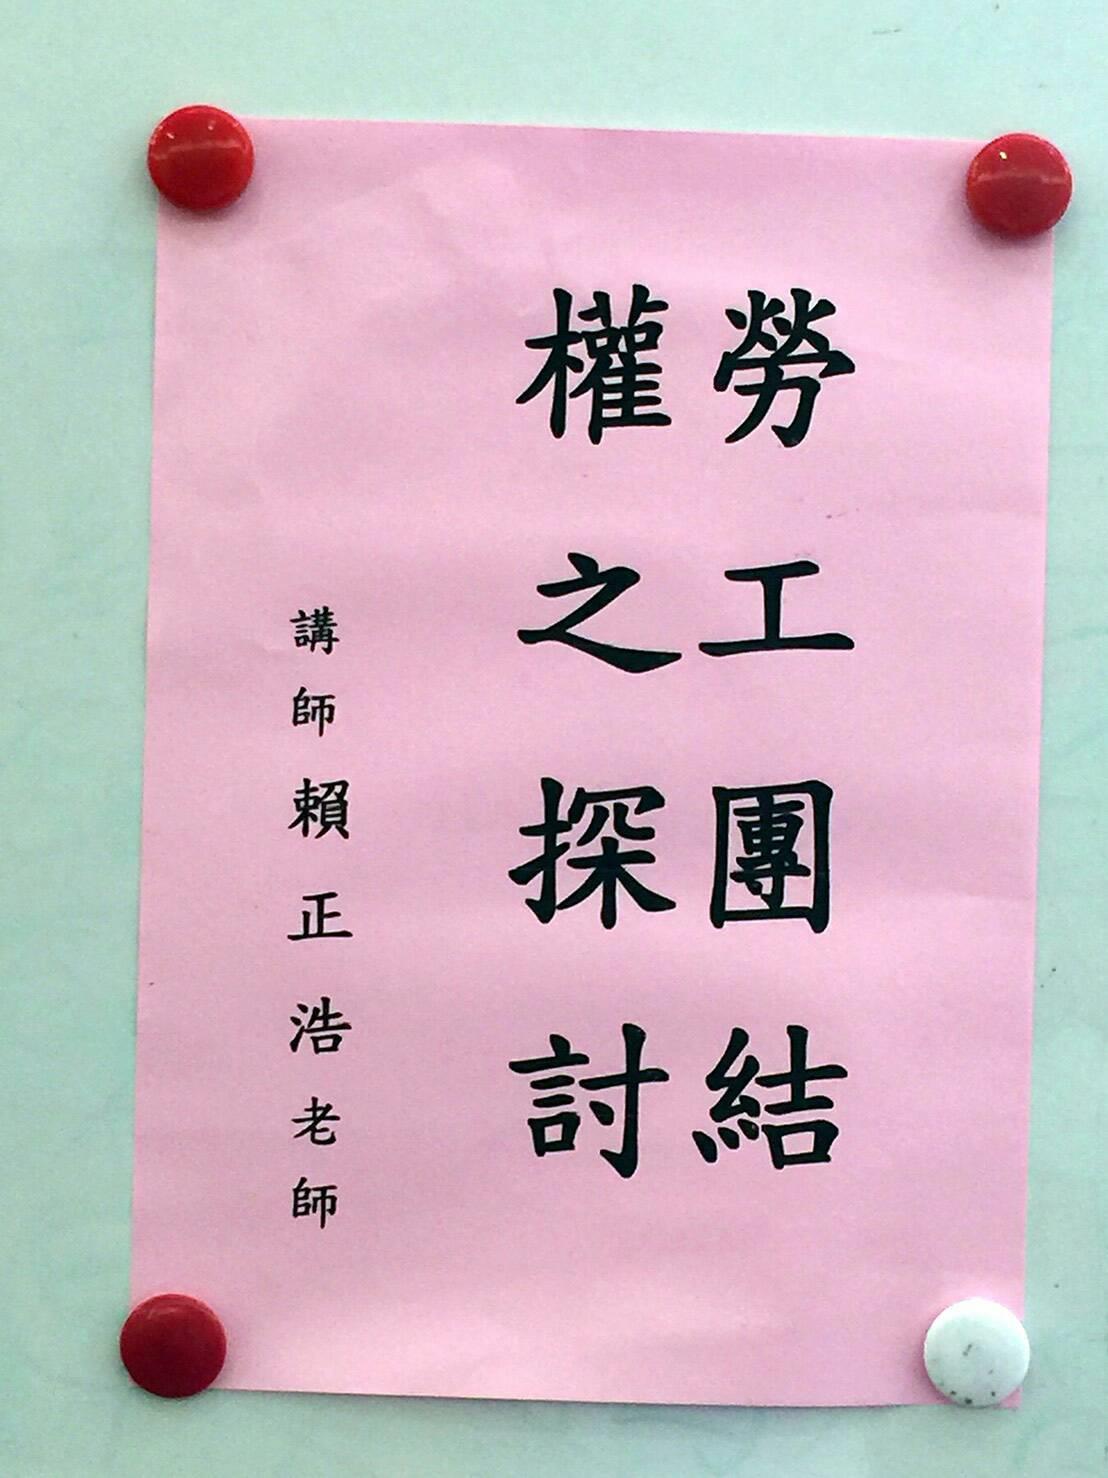 勞工團結
權之探討
講師賴正浩老師